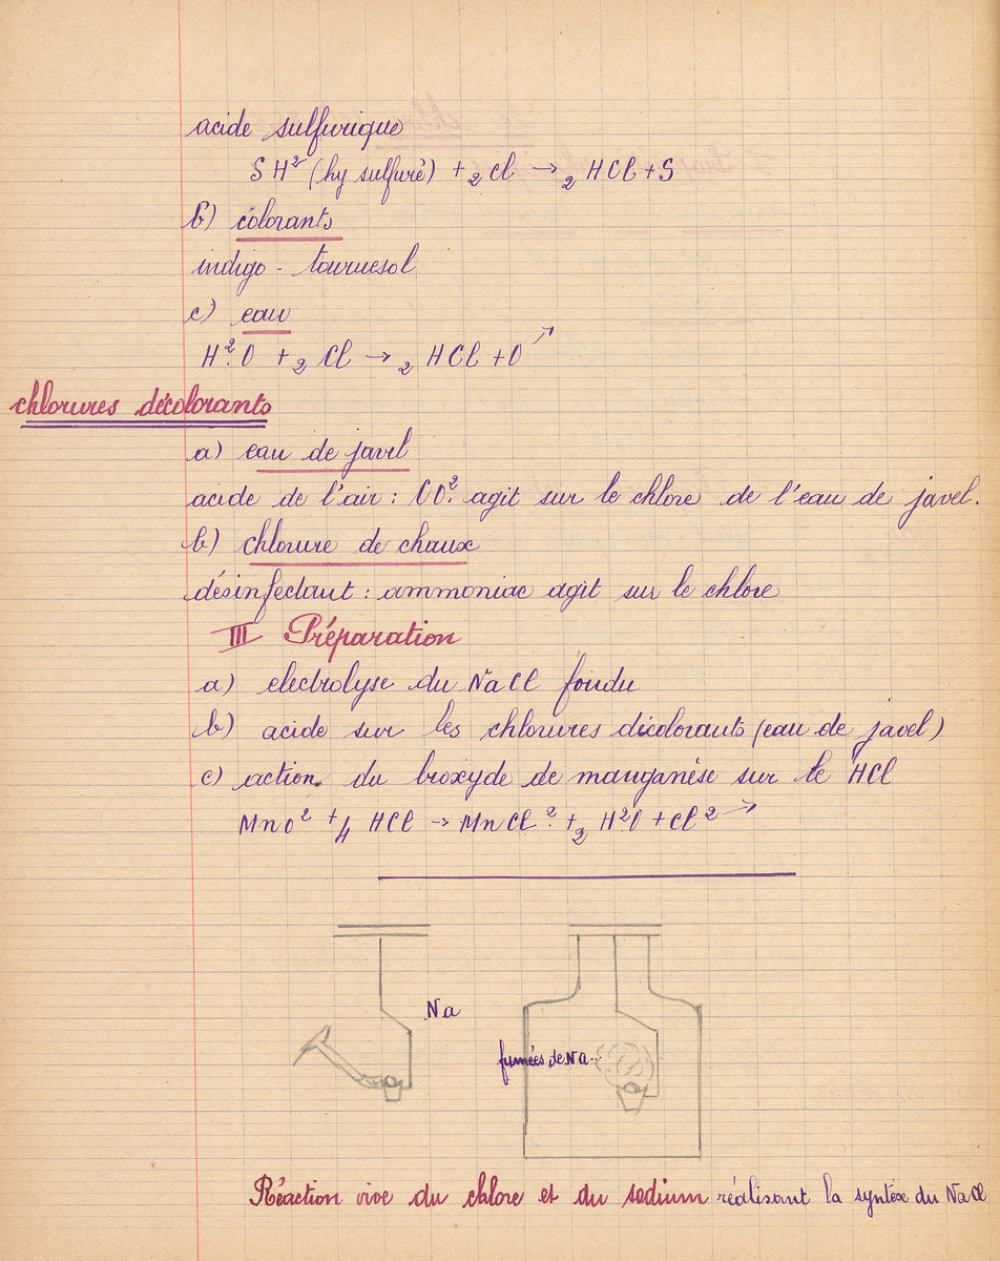 acide sulfurique
SH² (hy sulfuré) + 2 Cl → 2 HCl + S
b) colorants
indigo - tournesol
c) eau
H²O + 2 Cl → 2 HCl + O ↗
chlorures décolorants
a) eau de javel
acide de l'air : CO² agit sur le chlore de l'eau de javel.
b) chlorure de chaux
désinfectant : ammoniac agit sur le chlore
III Préparation
a) electrolyse du NaCl fondu
b) acide sur les chlorures décolorants (eau de javel)
c) action du bioxyde de manganèse sur le HCl
MnO² + 4 HCl → MnCl² + 2 H²O + Cl² ↗
Na
fumées de Na
Réaction vive du chlore et du sodium réalisant la syntèse du NaCl